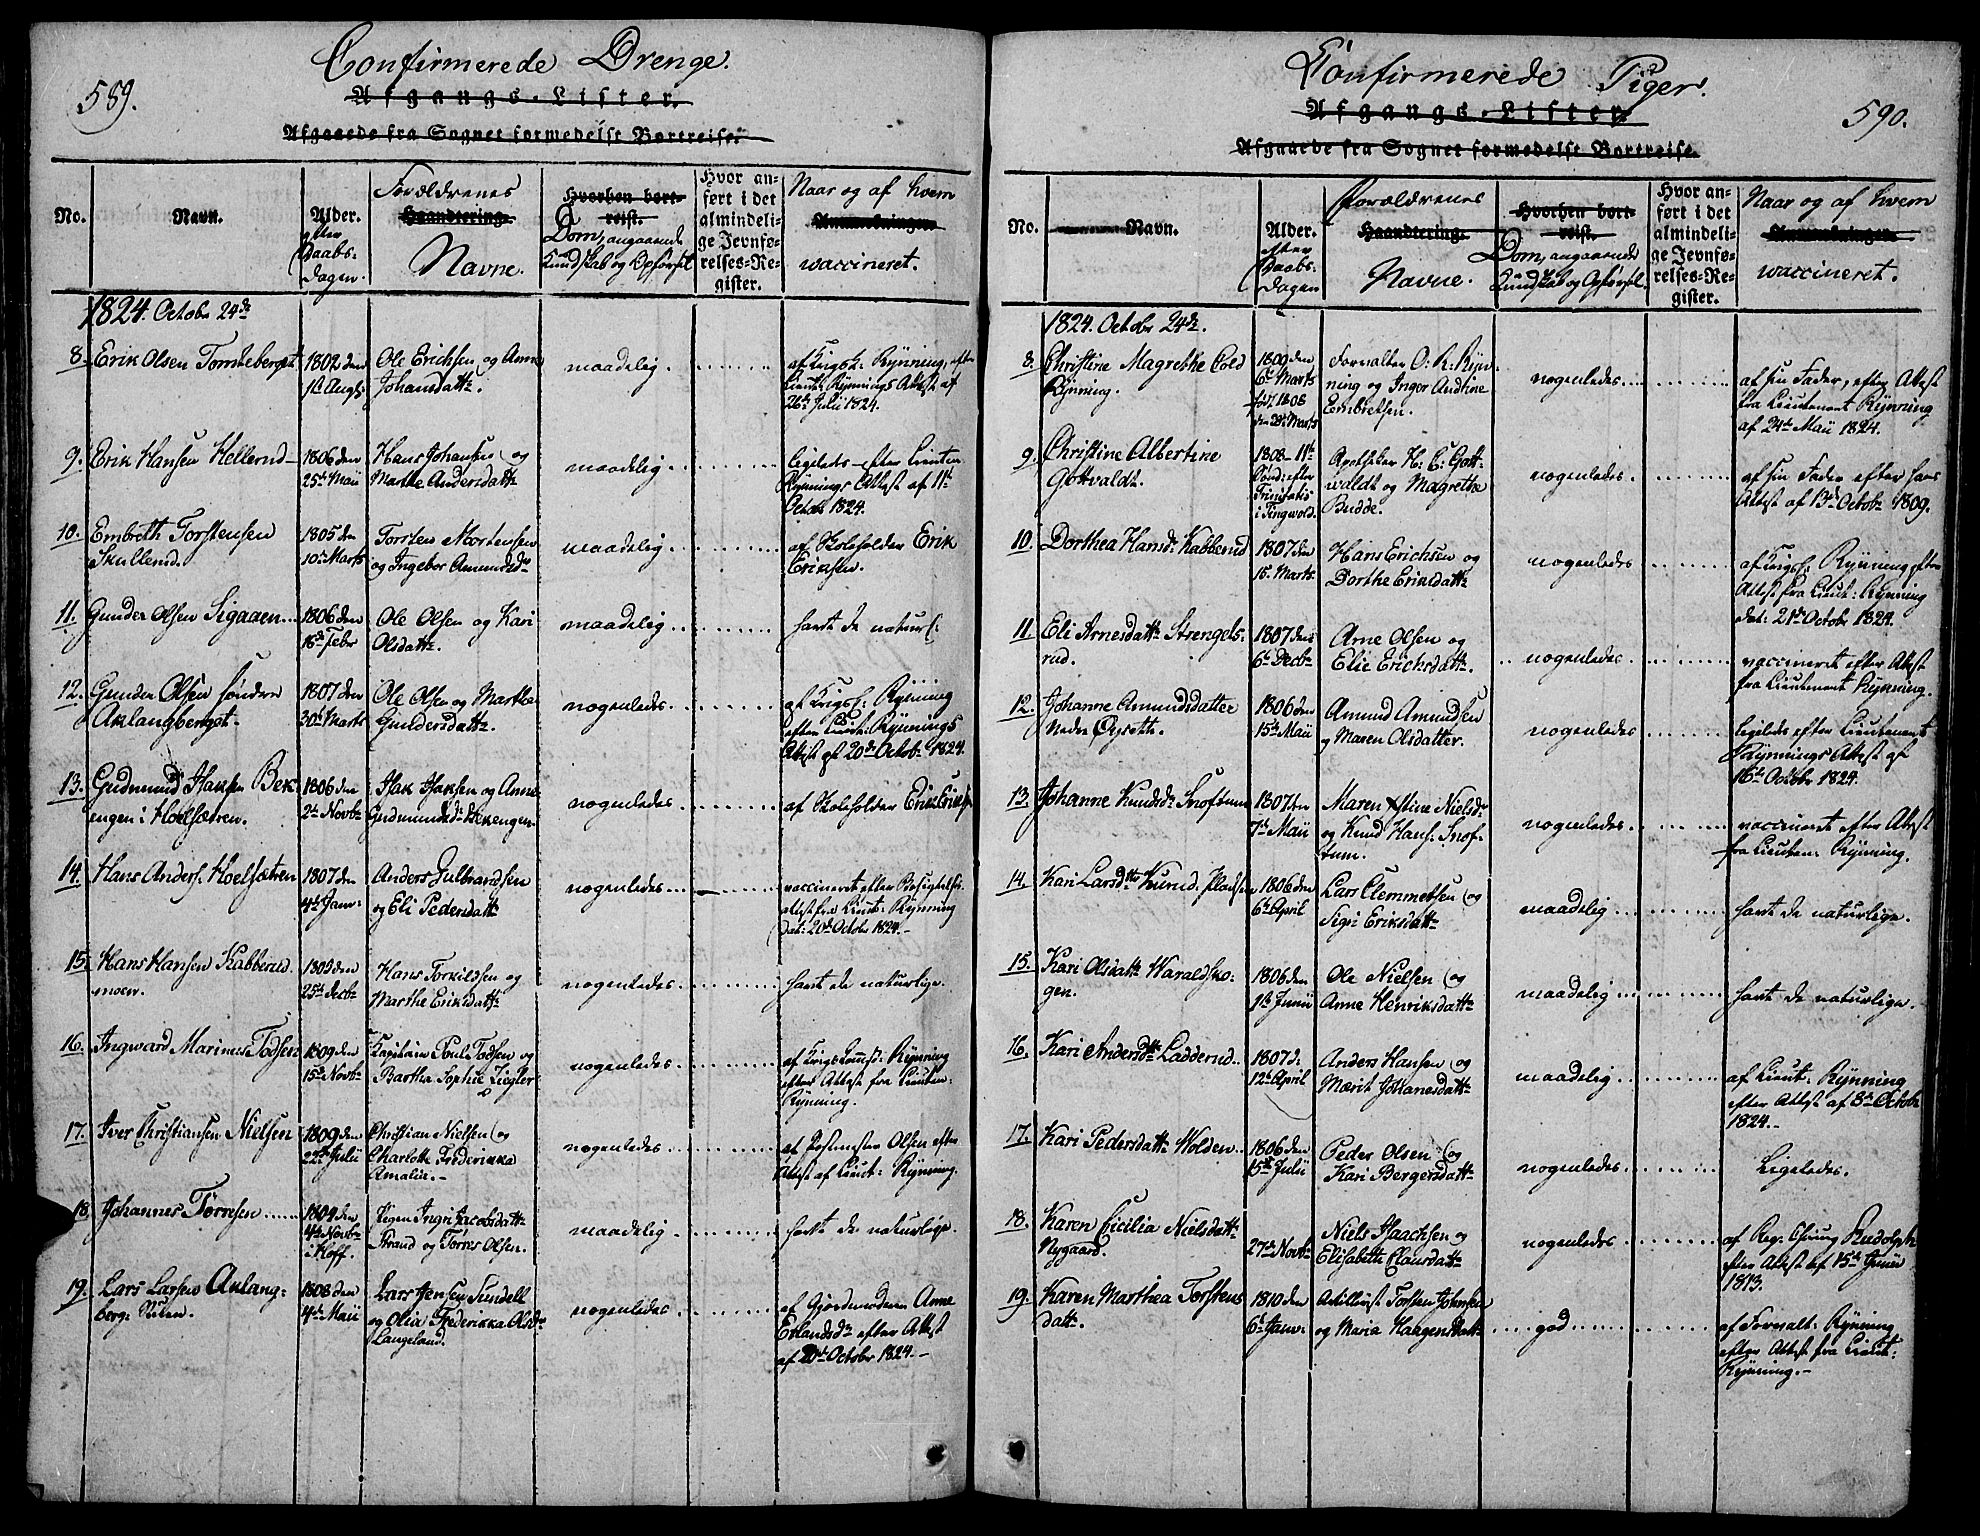 589.
Confirmerede Drenge.
Afgangs-Lister.
Afgaaede fra Sognet formedelst Bortreise.
No.
Navn.
Alder.
efter
Daabs-
dagen.
Forældrenes
Haandtering.
Navne.
Hvorhen bort-
reist.
Dom, angaaende
Kundskab og Opførsel
Hvor an-
ført i det
almindeli-
ge Jevnfø-
relses-Re-
gister.
Naar og af hvem
Anmærkninger.
vaccineret.
1824. Octobr 24de
8. Erik Olsen Torneberget
1802 den
1ste Augs
Ole Erichsen og Anne
Johansdattr.
maadelig
af Krigsk: Rynning, efter
Lieutn Rynnings Attest af
26de Julii 1824.
9. Erik Hansen Hellerud
1806 den
25de Maii
Hans Johansen og
Marthe Andersdattr
maadelig
ligeleds efter Lieuten
Rynnings Attest af 11te
Octobr 1824.
10. Embreth Torstensen
Skullerud.
1805 den
10de Marts
Torsten Mortensen
og Ingebor Amundsdr
maadelig
af Skoleholder Erik
Eriksen.
11. Gunder Olsen Sigaaen
1806 den
16de Febr
Ole Olsen og Kari
Olsdattr.
maadelig
havt de naturl:
12. Gunder Olsen søndre
Aklangberget.
1807 den
30de Marts
Ole Olsen og Marthe
Gundersdattr.
nogenledes
af Krigsk: Rynning
efter Lieut: Rynnings
Attest af 20de Octob. 1824.
13. Gudmund Isaksen Bek-
engen i Hoelsætren.
1806 den
2de Novbr
Isak Isaksen og Anne
Gudmundsdr Bekengen
nogenledes
af Skoleholder Erik Eriks
14. Hans Anders. Hoelsætren
1807 den
4de Janr
Anders Gulbrandsen
og Eli Pedersdattr
nogenledes
vaccineret efter Besigtels:
Attest fra Lieut: Rynning
Dat: 20de Octobr 1824.
15. Hans Hansen Kabberud
moen.
1805 den
25de Decbr
Hans Torkildsen og
Marthe Eriksdattr
nogenledes
havt de naturlige.
16. Ingward Marinus Todsen
1809 den
15de Novbr
Kapitain Poul Todsen og
Barthe Sophie Ziegler
nogenledes
af Krigskomss: Rynning
efter Attest fra Lieuten:
Rynning.
17. Iver Christiansen Nielsen
1809 den
22de Julii
Christian Nielsen og
Charlotte Frederikka
Amalie.
nogenledes
af Postmester Olsen efter
Attest af Lieut: Rynning.
18. Johannes Torresen
1809 den
4de Novbr
i Hoff.
Pigen Ingri Jacobsdattr
Strand og Torres Olsen.
maadelig
havt de naturlige.
19. Lars Larsen Aklang-
berg: Nilen.
1808 den
4de Maii
Lars Jensen Sundell
og Olia Frederikka Olsdr
Langeland.
nogenledes
af Gjordemoderen Anne
Erlandsdr efter Attest
af 20de October 1824.
590.
Confirmerede Piger.
Afgangs-Lister.
Afgaaede fra Sognet formedelst Bortreise.
No.
Navn.
Alder.
efter
Daabs-
dagen
Forældrenes
Haandtering.
Navne.
Hvorhen bort-
reist.
Dom, angaaende
Kundskab og Opførsel.
Hvor an-
ført i det
almindeli-
ge Jevnfø-
relses-Re-
gister.
Naar og af hvem
Anmærkninger.
vaccineret.
1824. Octobr 24de.
8. Christine Magrethe Cold
Rynning.
1809 den
6te Marts
født 1808
den 28de Marts
Forvalter O. R. Ryn-
ning og Inger Andrine
Embretsen.
nogenledes
af sin Fader, efter Attest
fra Lieutenant Rynning
af 24de Maii 1824.
9. Christine Albertine
Gottvaldt.
1808 11te
Sønd: efter
Trinitatis
i Tingvold.
Apotheker H: C: Gott-
valdt og Magrethe
Budde.
nogenledes
af sin Fader efter hans
Attest af 13de Octobr 1809.
10. Dorthea Hansdr Kabberud
1807 den
15. Marts
Hans Erichsen og
Dorthe Eriksdattr
nogenledes
af Krigsk: Rynning efter
Attest fra Lieut: Rynning
dat: 21de Octobr 1824.
11. Eli Arnesdattr Strengels-
rud.
1807 den
6te Decbr
Arne Olsen og
Elie Erichsdattr.
nogenledes
vaccineret efter Attest
fra Lieutenant Rynning.
12. Johanne Amundsdatter
Nedre Øyseth.
1806 den
15de Maii
Amund Amundsen
og Maren Olsdatter.
nogenledes
ligeledes efter Lieutenant
Rynnings Attest af
16de Octobr 1824.
13. Johanne Knudsdr Snoftum
1807 den
7de Maii
Maren Stine Nielsdr
og Knud Hans: Snof-
tum.
nogenledes
vaccineret efter Attest
fra Lieuten: Rynning.
14. Kari Larsdttr Kurud, Pladsen
1806 den
6te April
Lars Clemmetsen og
Sigri Eriksdattr
maadelig
havt de naturlige.
15. Kari Olsdattr Waraldsko-
gen.
1806 den
1ste Junii
Ole Nielsen og
Anne Henriksdattr
maadelig
havt de naturlige.
16. Kari Andersdttr Ladderud
1807 d:
12te April
Anders Hansen og
Marit Johansdattr
maadelig
af Lieut: Rynning
efter Attest af 8de Octobr
1824.
17. Kari Pedersdattr Wolden
1806 den
15de Julii
Peder Olsen og
Kari Bergersdattr
nogenledes
Ligeledes.
18. Karen Cicilia Nielsdattr
Nygaard.
27de Novbr
Niels Isachsen og
Elisabeth Clausdattr
nogenledes
af Reg. Chirurg Rudolph
efter Attest af 15de Junii
1813.
19. Karen Marthea Torstens
dattr.
1810 den
6te Janr
Artillerist Torsten Johnsen
og Maria Haagensdattr
god
af Forvalt: Rynning
efter Attest fra Lieut:
Rynning.